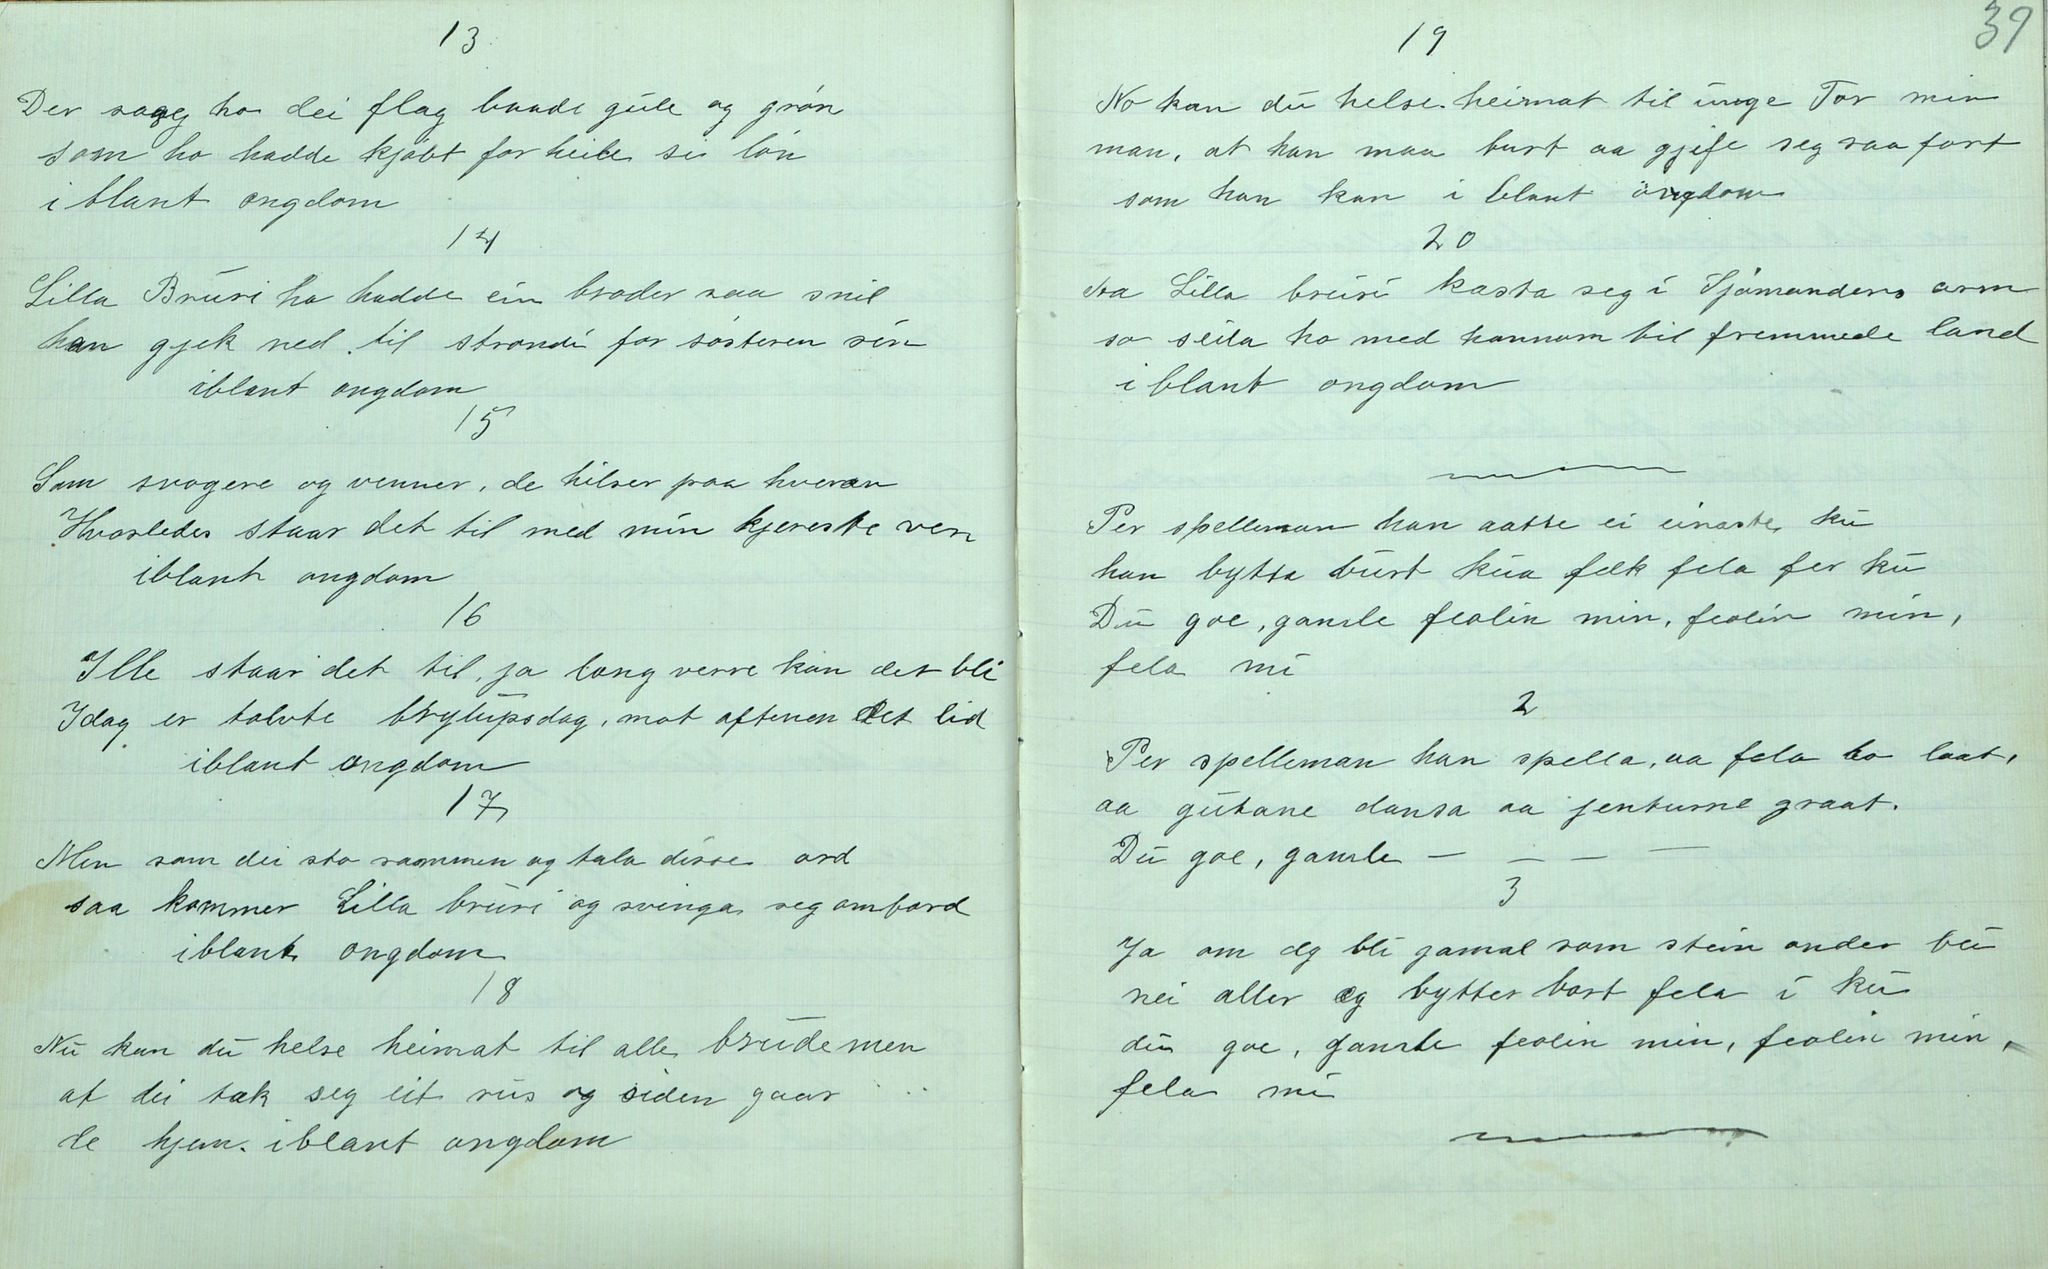 13
Der saag ho dei flag baade gule og grøn
som ho hadde kjøbt for heile si løn
i blant ongdom
14
Lilla Bruri ho hadde ein broder saa snil
han gjek ned til strandi for søsteren sin
iblant ongdom
15
Som svogere og venner, de hilser paa hveran
Hvorledes staar det til med min kjereste ven
iblant ongdom
16
Ille staar det til, ja lang verre kan det bli
Idag er tolvte brylupsdag, mot aftenen det lid
iblant ongdom
17
Men som dei sto sammen og tala disse ord
saa kommer Lilla bruri og svinga seg ombord
iblant ongdom
18
Nu kan du helse heimat til alle brudemen
at dei tæk seg eit rus og siden gaar
de hjem. iblant ongdom
39
19
No kan du helse heimat til unge Tor min
man, at han maa burt aa gjife seg saa fort
som han kan i blant ongdom
20
Aa Lilla bruri kasta seg i Sjømandens arm
so seila ho med honnom til fremmede land
i blant ongdom
Per spelleman han aatte ei einaste ku
han bytta burt kua fek fela fer ku
Du goe, gamle feolin min, feolin min,
fela mi
2
Per spelleman han spella, aa fela ho laat,
aa gutane dansa aa jenturne graat.
Du goe, gamle — — — —
3
Ja om eg bli gamal som stein onder bru
nei aller eg bytter bort fela i ku
du goe, gamle feolin min, feolin min,
fela mi